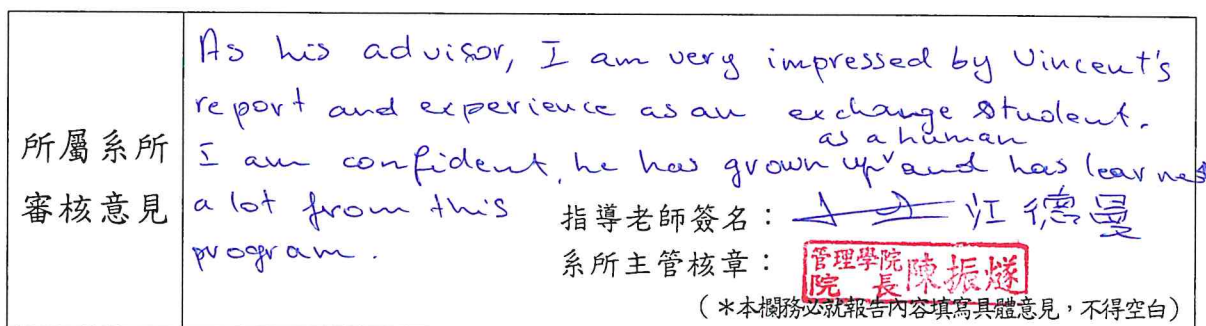 所屬系所
審核意見
As his advisor, I am very impressed by Vincent's
report and experience as an exchange student.
as a human
I am confident, he has grown up ˅ and has learned
a lot from this
program.
指導老師簽名： 江德曼
系所主管核章： 管理學院院長陳振燧
（*本欄務必就報告內容填寫具體意見，不得空白）